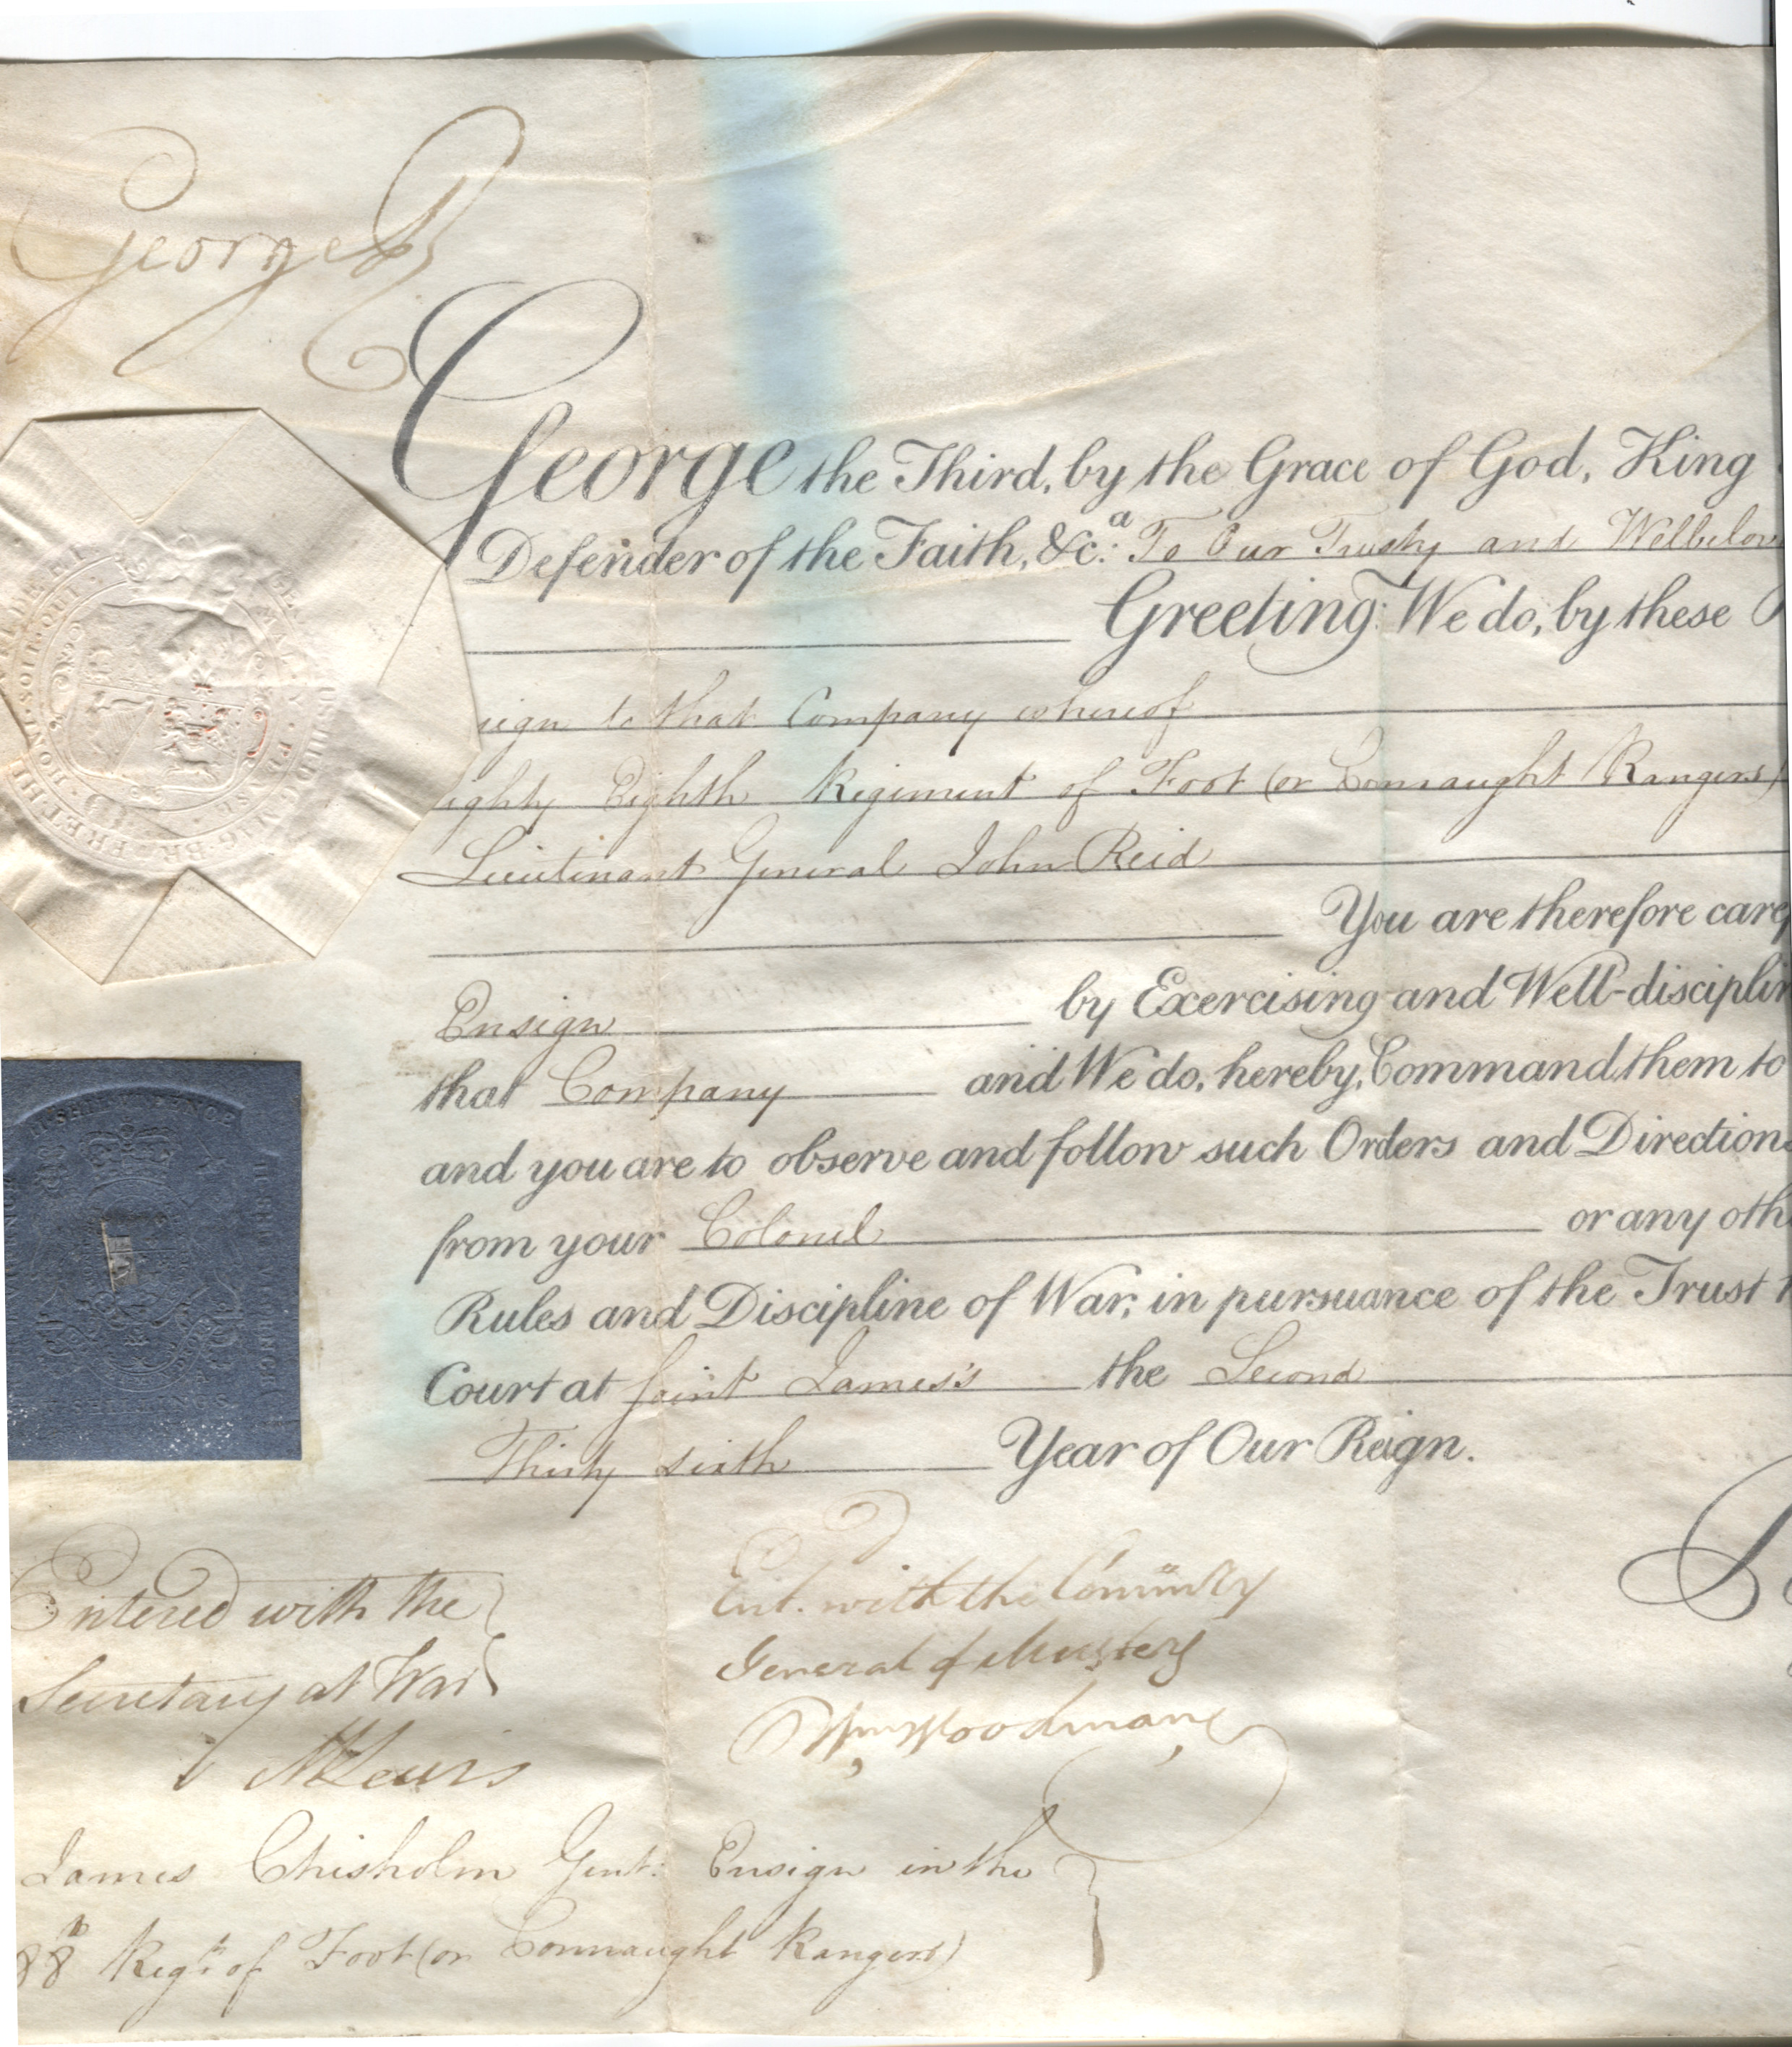 George R
George the Third, by the Grace of God, King
Defender of the Faith, &c.a To Our Trusty and Wellbelov
Greeting: We do, by these P
sign to that Company whereof
ighty Eighth Regiment of Foot (or Connaught Rangers)
Lieutenant General John Reid
You are therefore caref
Ensign by Exercising and Well-disciplin
that Company and We do, hereby, Command them to
and you are to observe and follow such Orders and Direction
from your Colonel or any oth
Rules and Discipline of War, in pursuance of the Trust
Court at Saint James's the Second
Thirty sixth Year of Our Reign.
Entered with the
Secretary at War
MLewis
Ent. with the Commry
General of Musters
Wm Woodman
James Chisholm Gent: Ensign in the
88th Regt. of Foot (or Connaught Rangers)